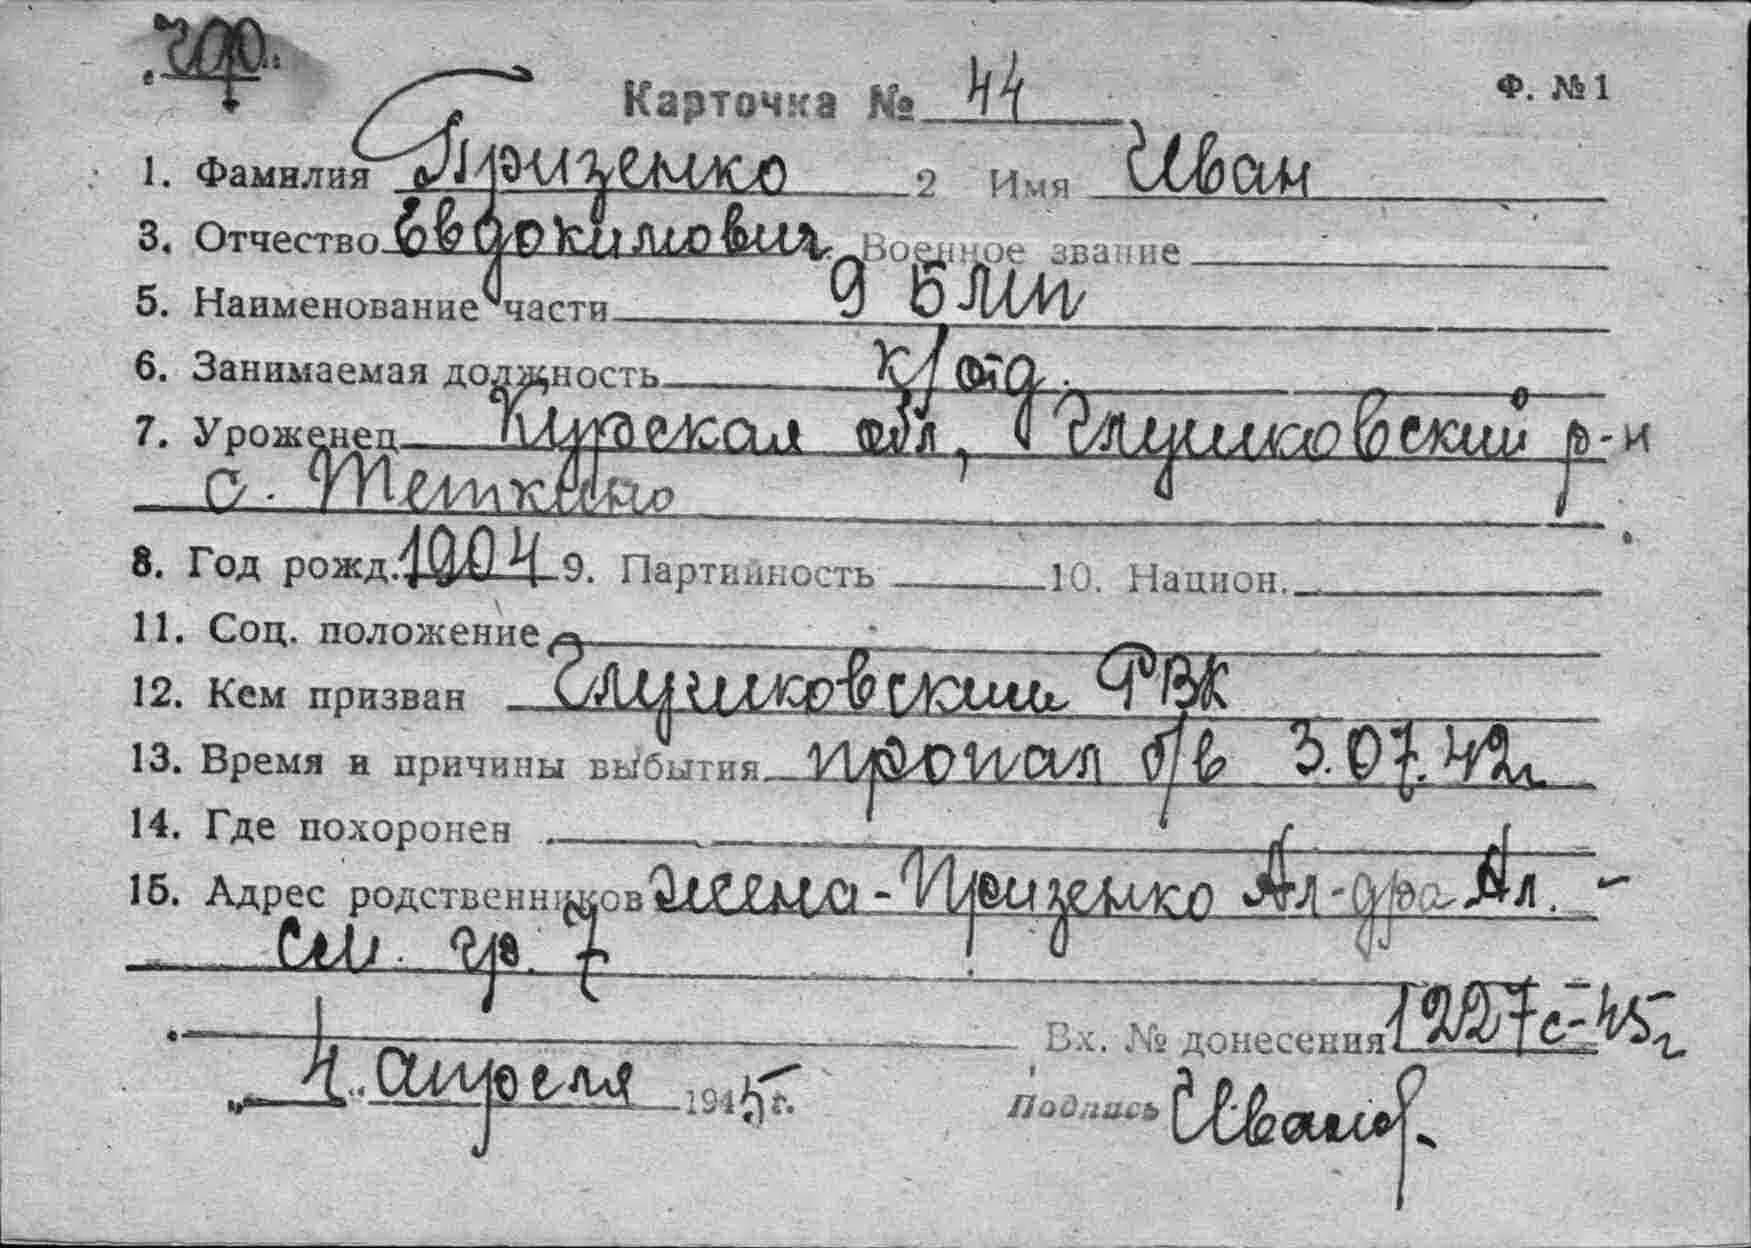 Карточка № 44 Ф. №1
1. Фамилия Призенко 2 Имя Иван
3. Отчество Евдокимович Военное звание
5. Наименование части 9 БМП
6. Занимаемая должность к/отд.
7. Уроженец Курская обл, Глушковский р-н
с. Теткино
8. Год рожд. 1904 9. Партийность 10. Национ.
11. Соц. положение
12. Кем призван Глушковский РВК
13. Время и причины выбытия пропал б/в 3.07.42г
14. Где похоронен
15. Адрес родственников жена - Призенко Ал-дра Ал. -
см. гр. 7
Вх. № донесения 1227с-45г
„4" апреля 1945 г. Подпись Иванов